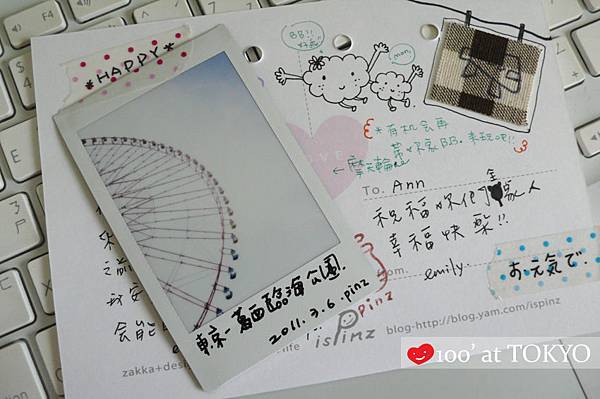 *HAPPY*
BB!!
好高~
mom
*有机会再
帶你家BB.來玩吧!!
←摩天輪
To. Ann
祝福妳们全家人
幸福快樂!!
From.
emily.
お元気で.
東京-葛西臨海公園.
2011.3.6.pinz
pinz
ispinz
zakka+design
life
blog-http://blog.yam.com/ispinz
会能
100' at TOKYO